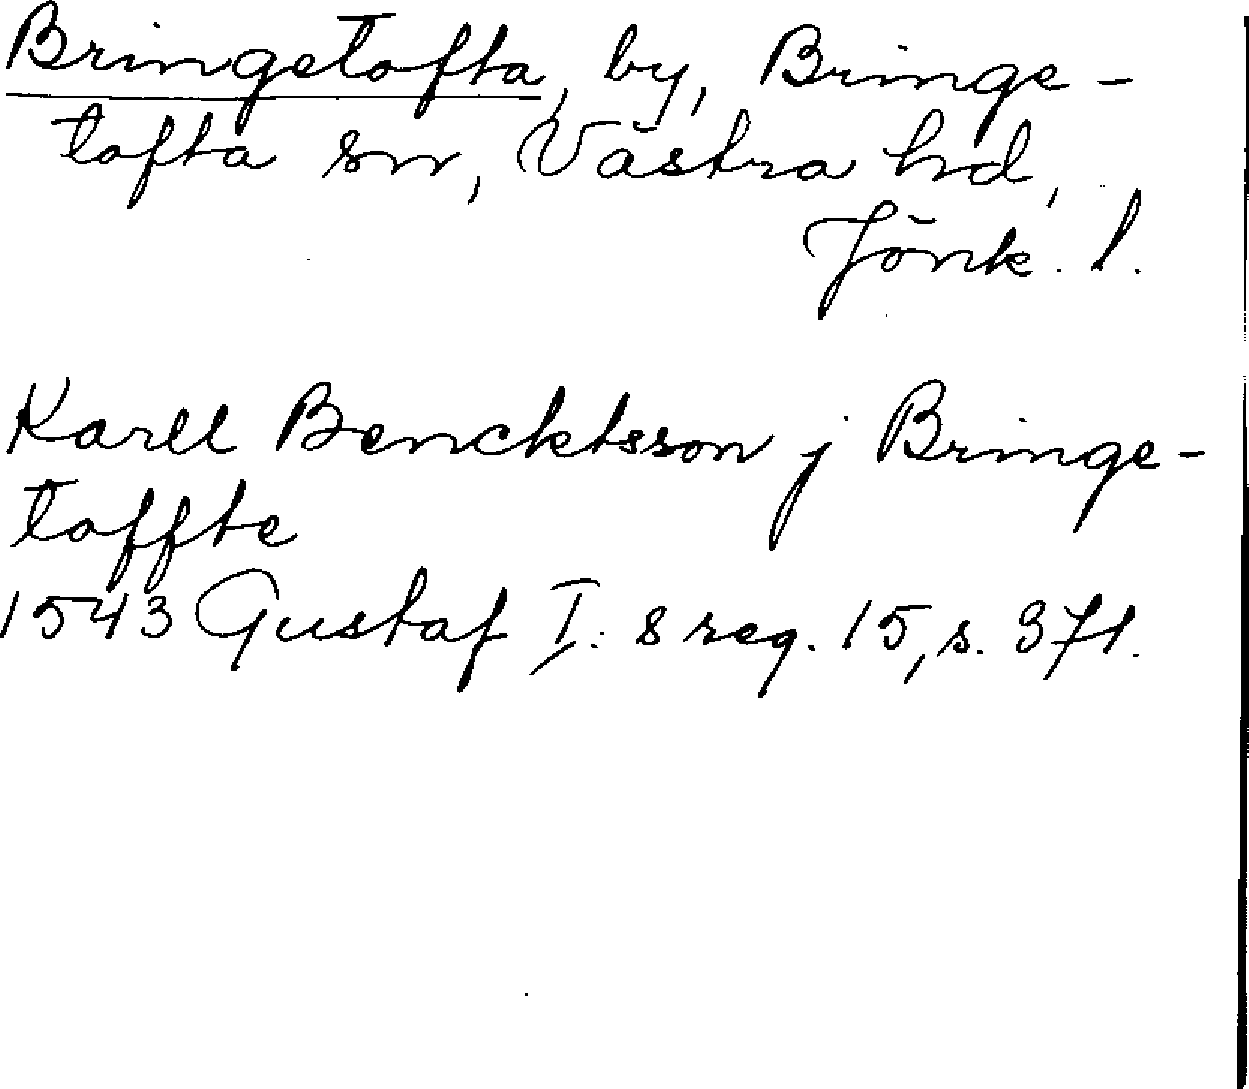 Bringetofta, by, Bringe-
tofta sn, Västra hd,
Jönk. l.
Karll Bencktsson j Bringe-
toffte
1543 Gustaf I:s reg. 15, s. 371.